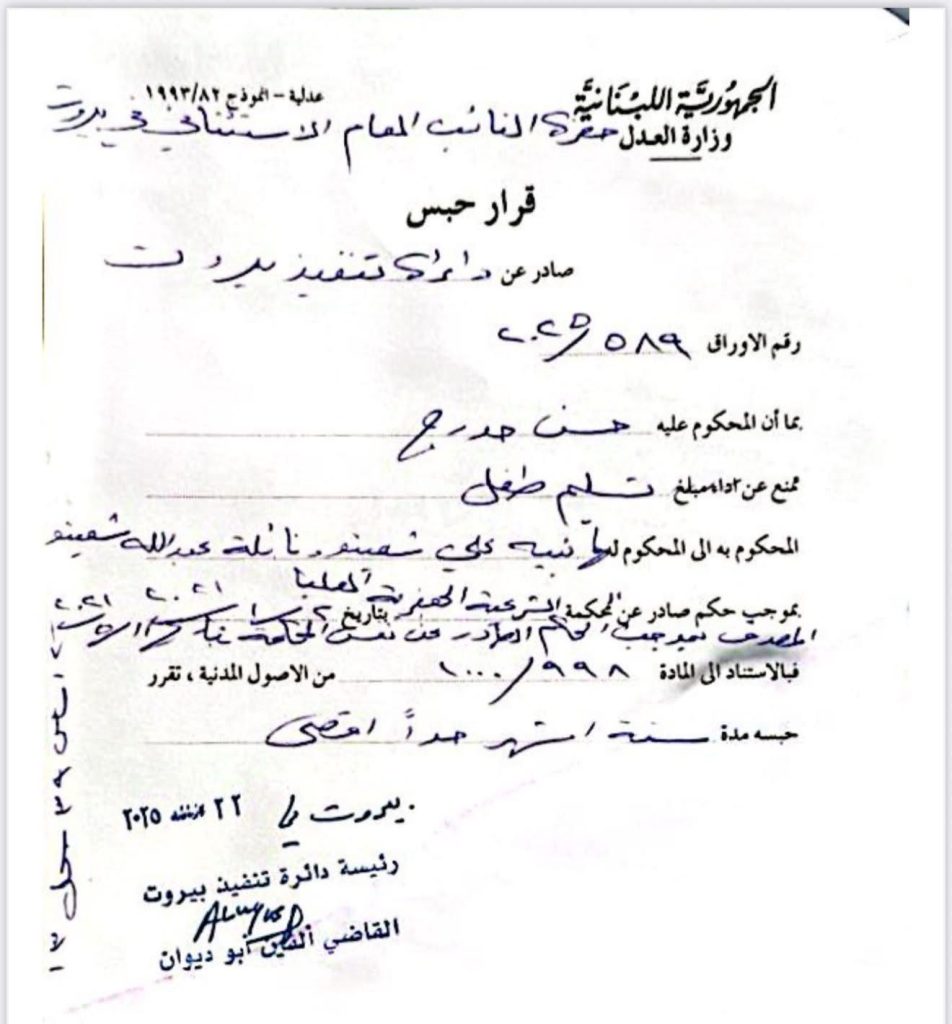 الجمهورية اللبنانية
وزارة العدل
عدلية - نموذج ١٩٩٣/٨٢
حضرة النائب العام الاستئنافي في بيروت
قرار حبس
صادر عن دائرة تنفيذ بيروت
رقم الاوراق ٥٨٩/٢٠٢٥
بما أن المحكوم عليه حسن حدرج
ممتنع عن اداء مبلغ تسليم طفل
المحكوم به الى المحكوم لها نبيه علي شعيتو. نائلة عبدالله شعيتو
بموجب حكم صادر عن المحكمة الشرعية الجعفرية العليا بتاريخ ٢٠٢١
بموجب الحكم الصادر عن نفس المحكمة ٢٠٢١
فبالاستناد الى المادة ٩٩٨/١٠٠٠ من الاصول المدنية ، تقرر
حبسه مدة ستة اشهر حداً اقصى
بيروت في ٢٢ ٢٠٢٥
رئيسة دائرة تنفيذ بيروت
القاضي ألفين أبو ديوان